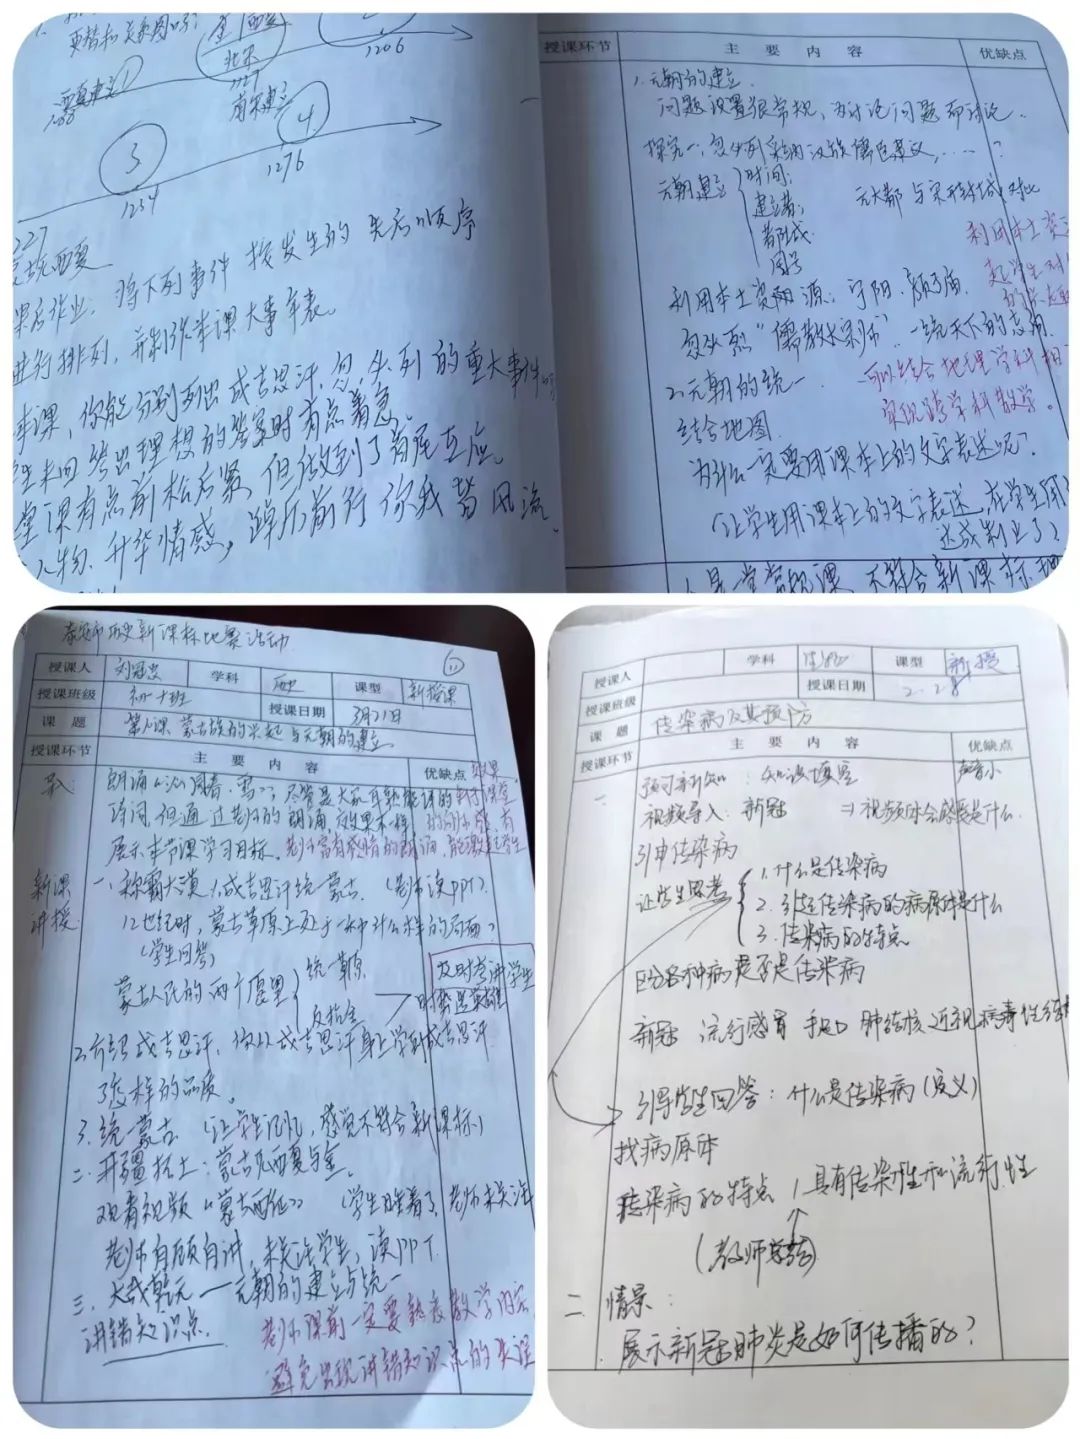 更替和关系图吗?
金
西夏
北宋
1127
南宋建立
1206
3
4
1234
1276
1227
蒙古灭西夏
课后作业:将下列事件按发生的先后顺序
进行排列,并制作本课大事年表。
本课,你能分别列出成吉思汗、忽必烈的重大事件吗
学生未回答出理想的答案时有点着急
堂课有点前松后紧,但做到了首尾呼应。
人物、升华情感,踔厉前行你我皆风流
授课环节 主要内容 优缺点
1.元朝的建立
问题设置很常规,为讨论问题而讨论.
探究一:忽必烈采纳汉族儒臣建议,……?
元朝建立
时间:
建立者:
都城:
国号
元大都与宋开封城对比
利用本土资
利用本土资源:宁阳·颜子庙.
忽必烈“儒教大宗师”.一统天下的志向
2.元朝的统一
可以结合地理学科相
实现跨学科教学。
结合地图
为什么一定要用课本上的文字表述呢?
(让学生用课本上的文字表述,在学生
达成制业了)
是一堂常规课,不符合新课标理
泰安市历史新课标比赛活动
授课人 刘冠忠 学科 历史 课型 新授课
11
授课班级 初一十班 授课日期 3月21日
课题 第10课 蒙古族的兴起与元朝的建立
授课环节 主要内容 优缺点
导:
朗诵《沁园春·雪》,尽管是大家耳熟能详的
诗词,但通过老师的朗诵,效果不一样
展示本节课学习目标.
老师富有感情的朗诵,能激起学生
新课
讲授:
一、称霸大漠 1.成吉思汗统一蒙古.(老师读PPT).
12世纪时,蒙古草原上处于一种什么样的局面?
(学生回答)
蒙古人民的两个愿望
统一草原
反抗金
及时考评学生
时势造英雄
2.介绍成吉思汗,你从成吉思汗身上学到成吉思汗
了怎样的品质。
3.统一蒙古.(让学生记忆,感觉不符合新课标)
二.开疆拓土:蒙古灭西夏与金.
观看视频“蒙古西征”(学生睡着了,老师未关注
老师自顾自讲,未关注学生,读PPT.
三.大哉乾元——元朝的建立与统一
讲错知识点.
老师课前一定要熟悉教学内容,
避免出现讲错知识点的失误
授课人 学科 课型 新授
授课班级 授课日期 2.28
课题 传染病及其预防
授课环节 主要内容 优缺点
一
预习新知:知识填空
声音小
视频导入:新冠⇒视频体会感受是什么.
引申传染病
让学生思考
1.什么是传染病
2.引起传染病的病原体是什么
3.传染病的特点
区分各种病是否是传染病
新冠 流行感冒 手足口 肺结核 近视 病毒性
引导学生回答:什么是传染病(定义)
找病原体
传染病的特点 1.具有传染性和流行性
(教师总结)
二 情景:
展示新冠肺炎是如何传播的?